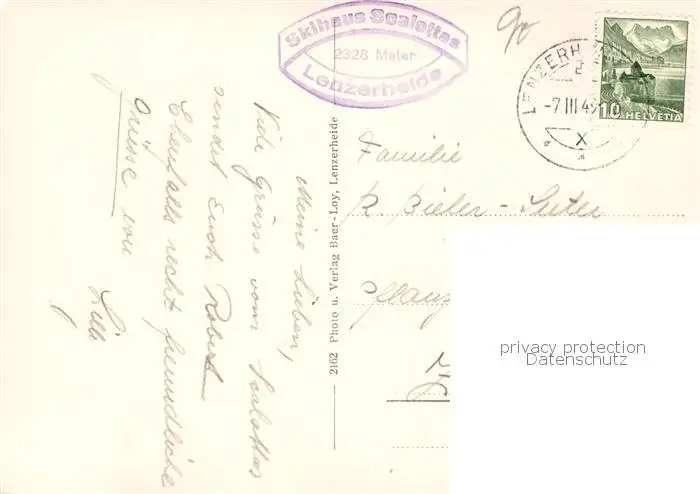 Skihaus Scalottas
2328 Meter
Lenzerheide
LENZERHEIDE
-7.III.49
X
10 HELVETIA
Meine Lieben,
Viele Grüsse vom Scalottas
sendet Euch Robert
Ebenfalls recht freundliche
Grüsse von
Lilli
2162 Photo u. Verlag Baer-Loy, Lenzerheide
Familie
R. Bieler-Suter
privacy protection
Datenschutz